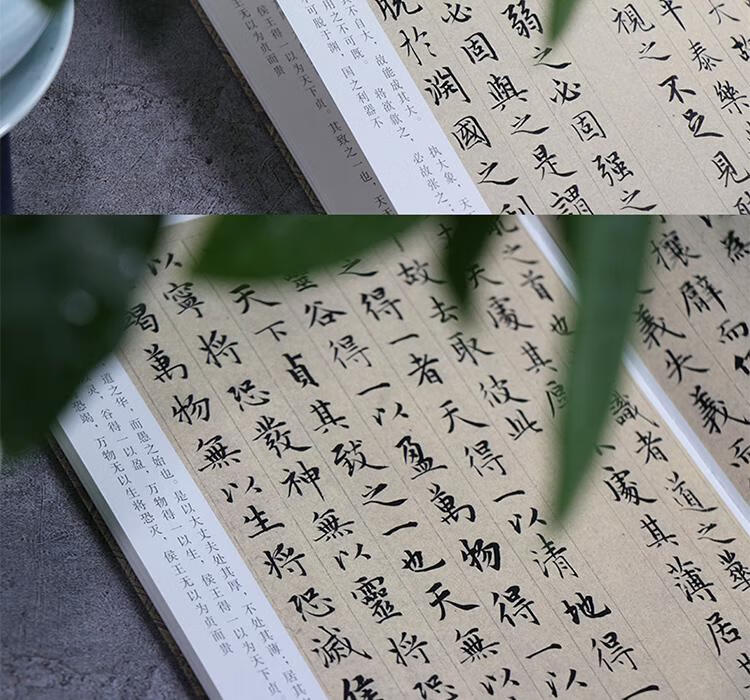 平泰樂
視之不足見
弱之必固强之
必固與之是謂
脱於淵國之利
执大象，天
不自大，故能成其大。 将欲歙之，必故张之，
用之不可既。
可脱于渊，国之利器不
侯王得一以为天下贞。其致之一也，天
王无以为贞而贵
攘臂而
義失義而
識者道之華
處其薄居
之首也
處其厚
故去取彼此
得一者天得一以清地得一
谷得一以盈萬物得一以
天下貞其致之一也天無以
寧將恐發神無以靈將恐
以竭萬物無以生將恐滅侯
道之华，而愚之始也。是以大丈夫处其厚，不处其薄；居其
灵，谷得一以盈，万物得一以生，侯王得一以为天下贞。
恐竭，万物无以生将恐灭，侯王无以为贞而贵